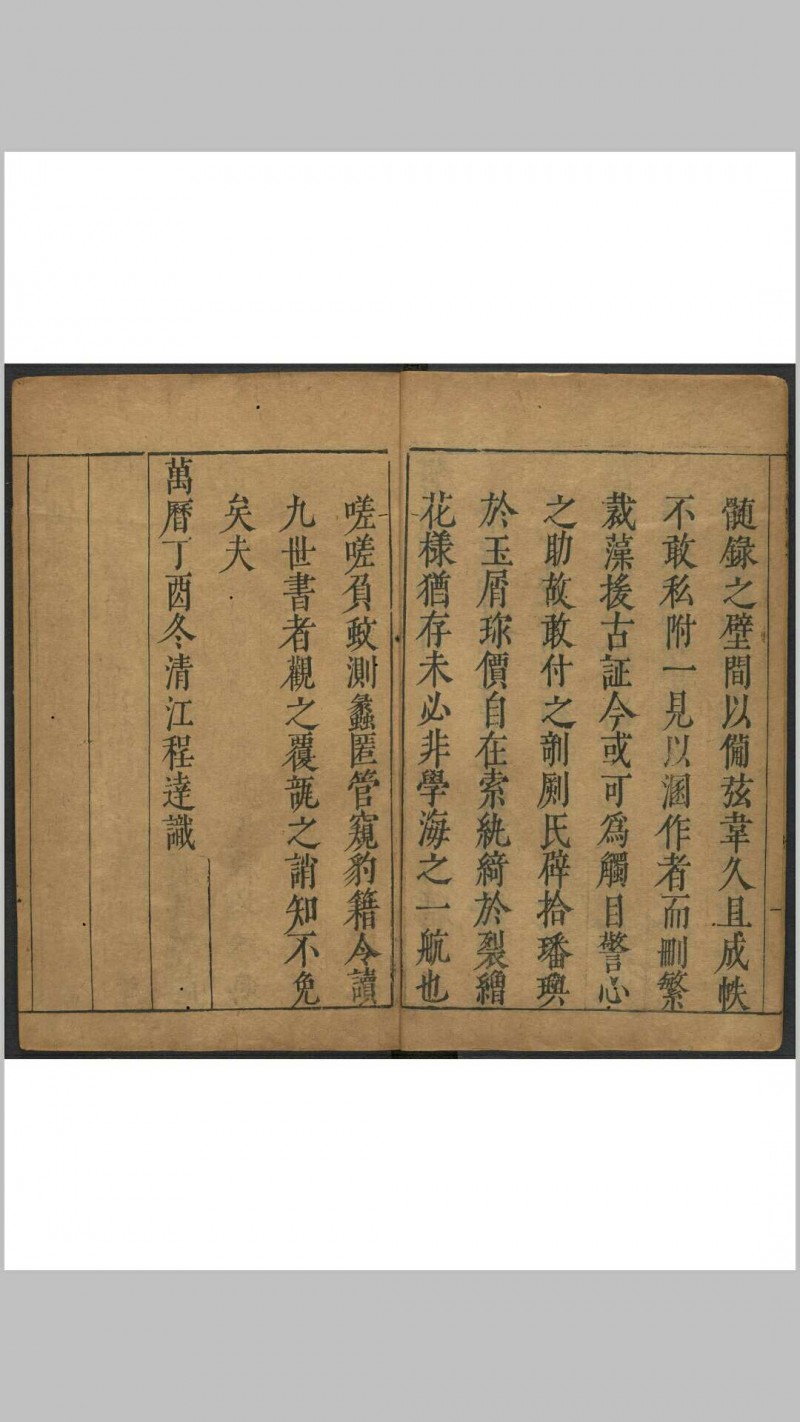 髄錄之壁間以俻弦韋久且成帙
不敢私附一見以溷作者而刪繁
裁藻援古証今或可爲觸目警心
之助故敢付之剞劂氏碎拾璠璵
於玉屑珎價自在索紈綺於裂繒
花樣猶存未必非學海之一航也
嗟嗟負蚊測蠡匿管窺豹籍令讀
九世書者觀之覆瓿之誚知不免
矣夫
萬曆丁酉冬清江程達識